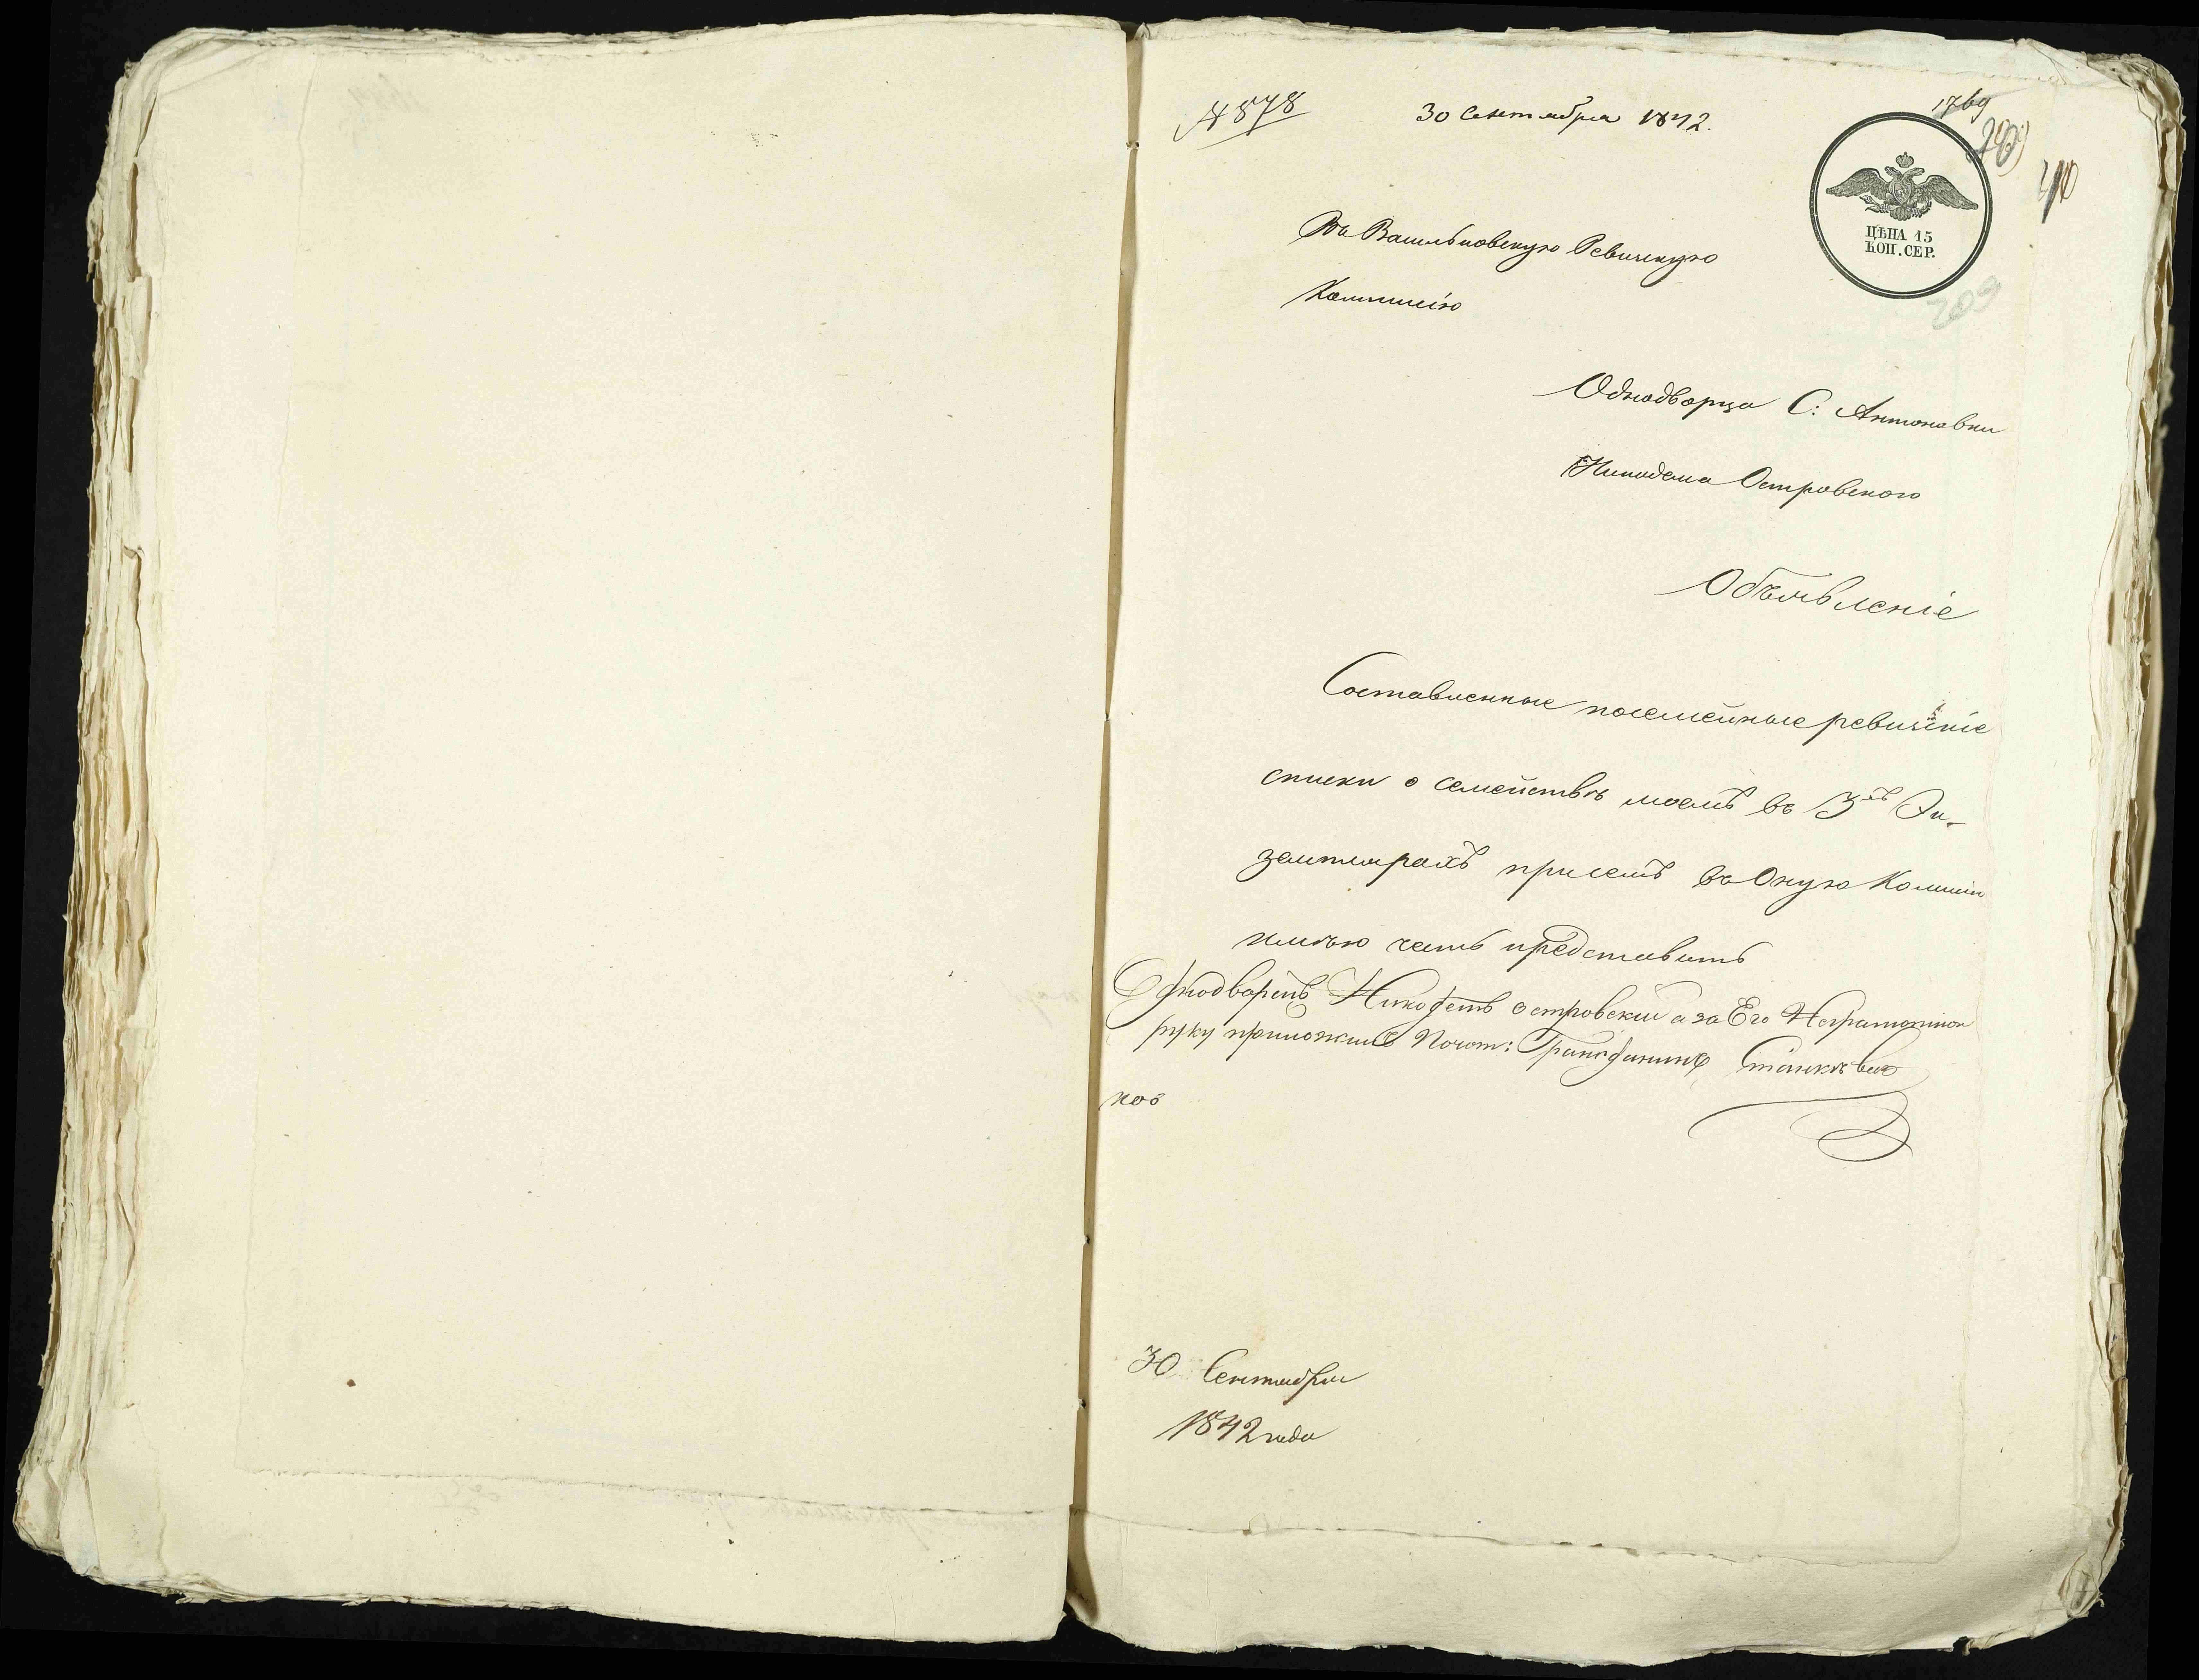 № 878
30 Сентября 1842.
1769
ЦѢНА 15
КОП. СЕР.
209
Въ Васильковскую Ревизскую
Коммисію
Однодворца С: Антоновки
Никодема Островского
Объявленіе
Составленные посемейные ревизскіе
списки о семействѣ моемъ въ 3хъ Эк-
земплярахъ присемъ въ Оную Комисію
имѣю честь представить
Однодворецъ Никодемъ Островский а за Его Неграмотного
руку приложилъ Почот: Гражданинъ
30 Сентября
1842 года